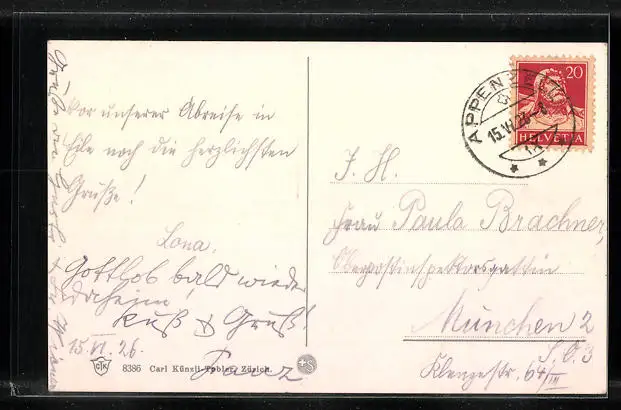 Vor unserer Abreise in
Eile noch die herzlichsten
Grüße!
Lona.
Gottlob bald wieder
daheim!
Kuß & Gruß!
15.VI.26.
Franz
Grüße
8386 Carl Künzli-Tobler, Zürich.
CTK
+S
20
HELVETIA
APPENZELL
15.VI.26
J. H.
Frau Paula Brachner,
Oberpostinspektorsgattin
München 2
S.O.3
Klenzestr. 64/III